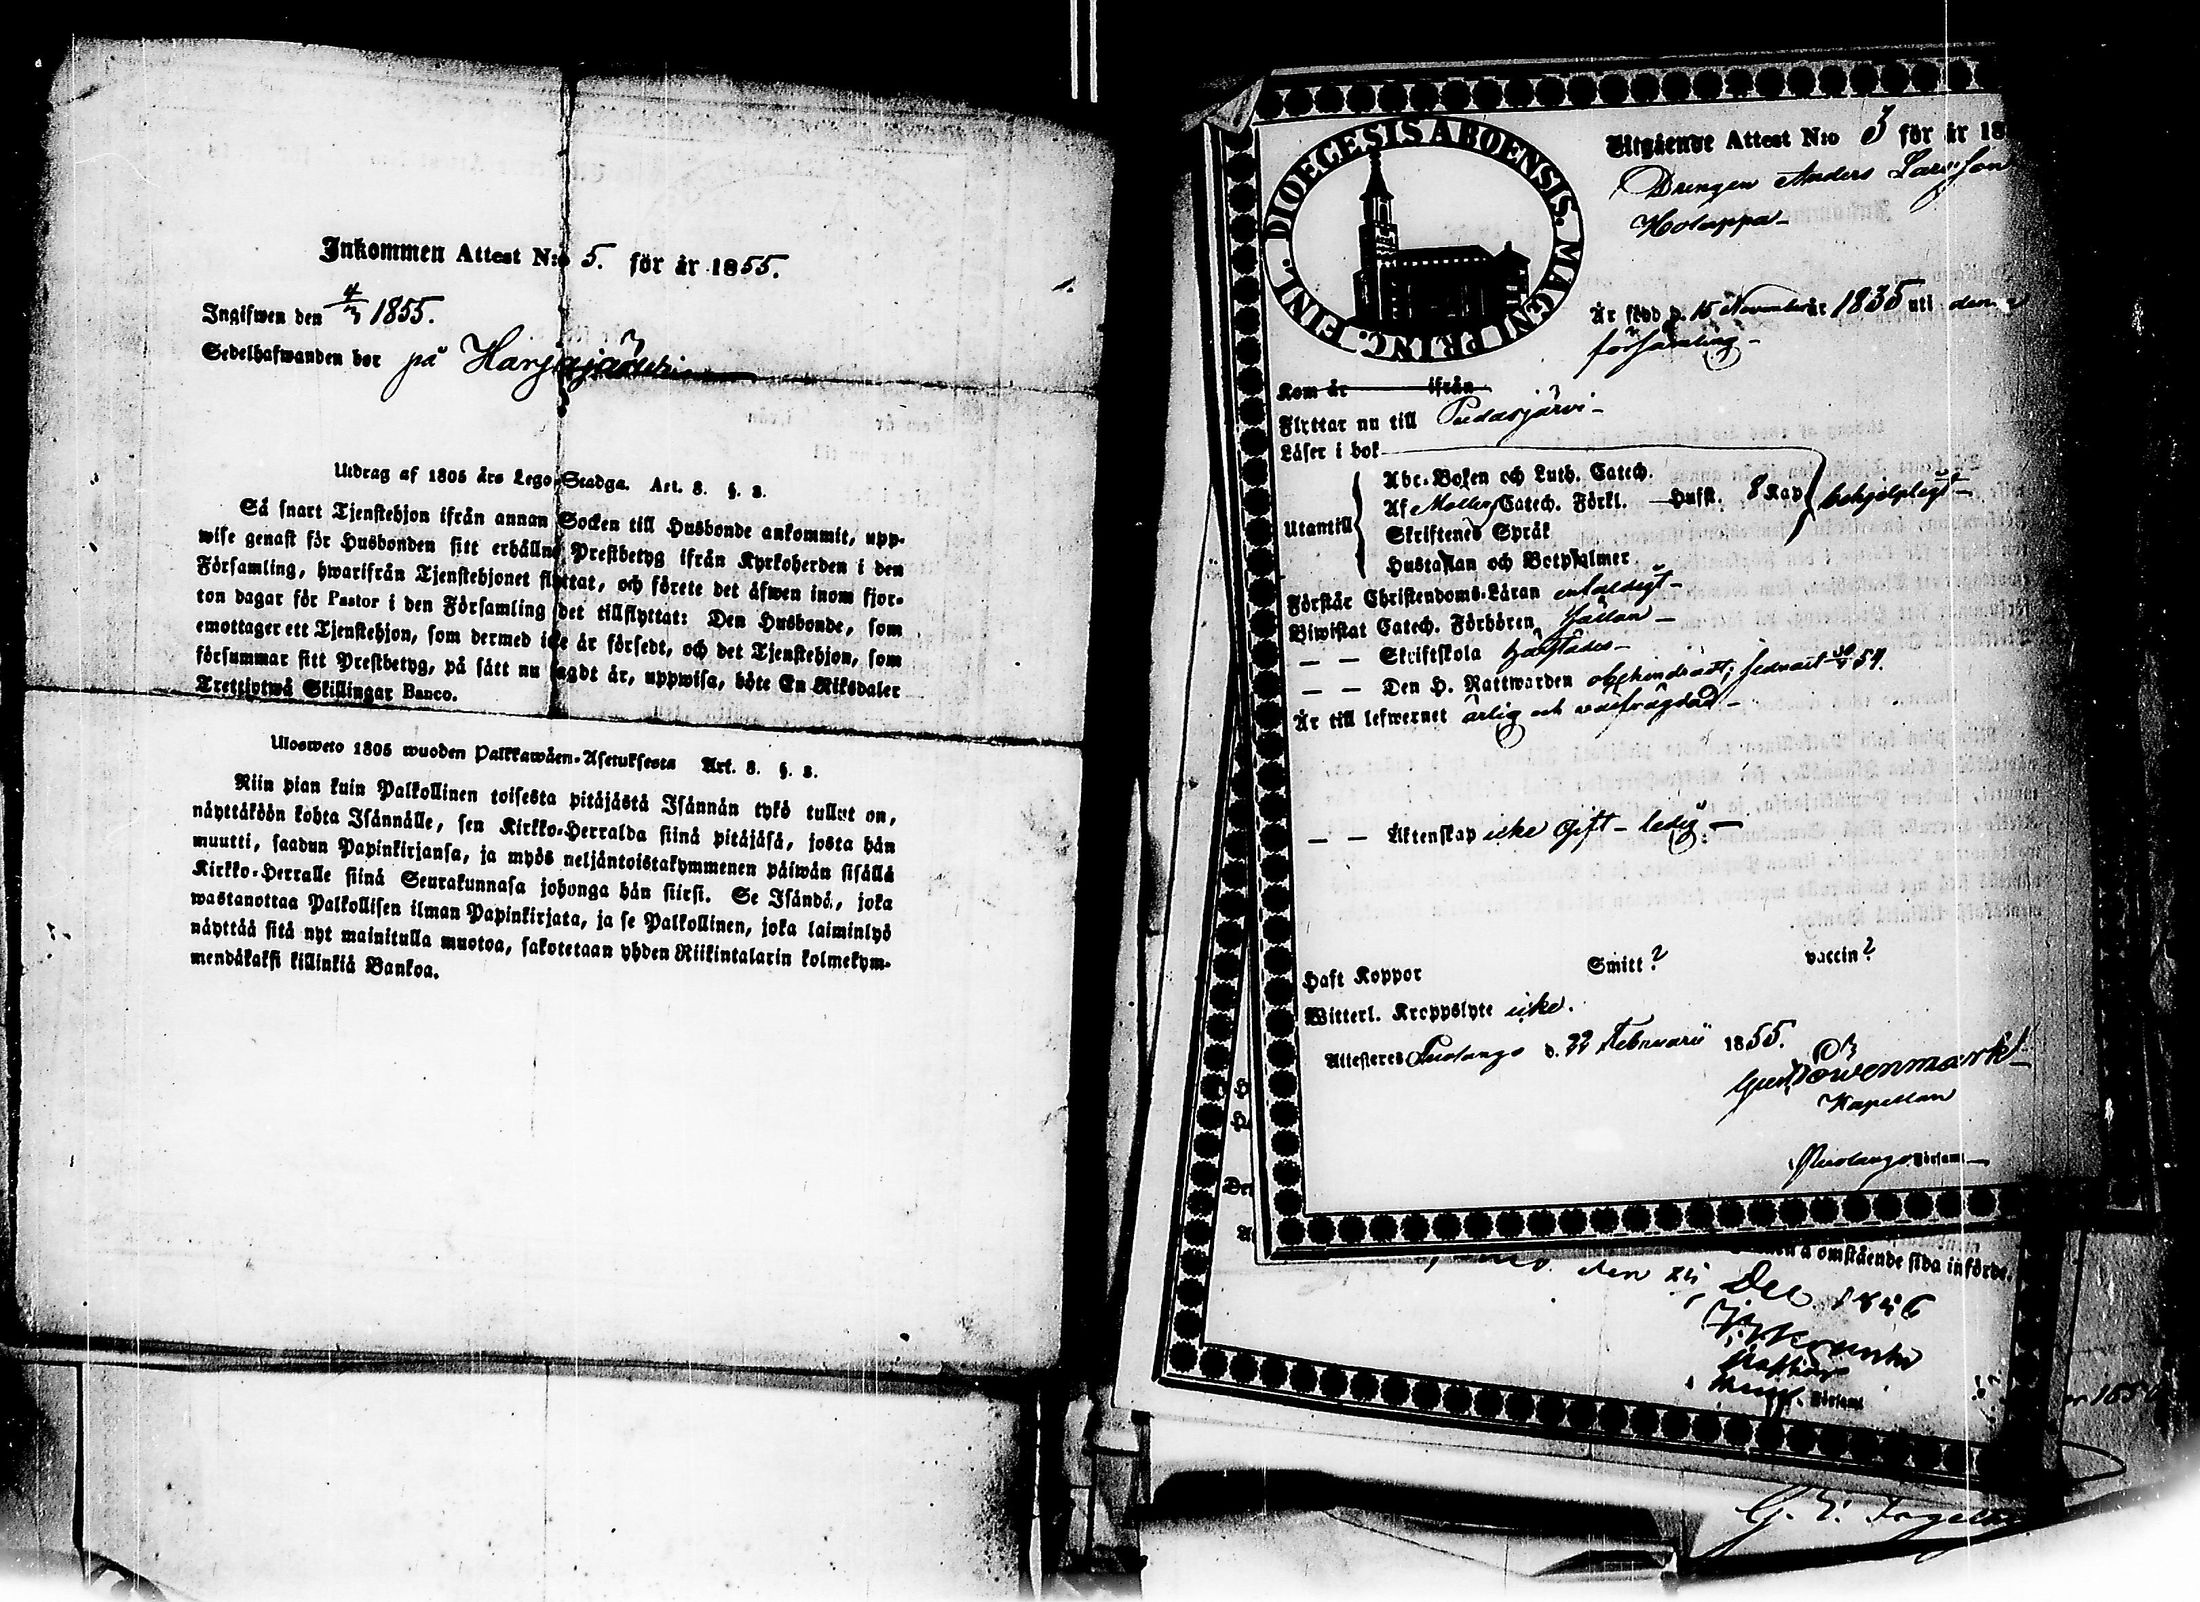 Inkommen Attest N:o 5. för år 1855.
Ingifwen den 4/3 1855.
Sedelhafwanden bor på Harjajärvi
Utdrag af 1805 års Lego-Stadga. Art. 8. §. 3.
Så snart Tjenstehjon ifrån annan Socken till Husbonde ankommit, upp-
wise genast för Husbonden sitt erhållne Prestbetyg ifrån Kyrkoherden i den
Församling, hwarifrån Tjenstehjonet flyttat, och förete det äfwen inom fjor-
ton dagar för Pastor i den Församling det tillflyttat: Den Husbonde, som
emottager ett Tjenstehjon, som dermed icke är försedt, och det Tjenstehjon, som
försummar sitt Prestbetyg, på sätt nu sagdt är, uppwisa, böte En Riksdaler
Trettiotwå Skillingar Banco.
Ulosweto 1805 wuoden Palkkawäen-Asetuksesta Art. 8. §. 3.
Niin pian kuin Palkollinen toisesta pitäjästä Isännän tykö tullut on,
näyttäköön kohta Isännälle, sen Kirkko-Herralda siinä pitäjäsä, josta hän
muutti, saadun Papinkirjansa, ja myös neljäntoistakymmenen päiwän sisällä
Kirkko-Herralle siinä Seurakunnasa johonga hän siirsi. Se Isändä, joka
wastanottaa Palkollisen ilman Papinkirjata, ja se Palkollinen, joka laiminlyö
näyttää sitä nyt mainitulla muotoa, sakotetaan yhden Riikintalarin kolmekym-
mendäkaksi killinkiä Bankoa.
DIOECESIS ABOENSIS. MAGNI PRINC. FINL.
Utgående Attest N:o 3 för år 18
Drengen Anders Larsson
Holappa
Är född d. 15 November år 1835 uti denna
församling
Kom år ifrån
Flyttar nu till Pudasjärvi
Läser i bok
Utantill
Abc-Boken och Luth. Catech.
Af Möllers Catech. Förkl. Hufst. 8 Kap behjelpligt
Skriftenes Språk
Hustaflan och Botpsalmer
Förstår Christendoms-Läran enfaldigt
Biwistat Catech. Förhören sällan
— — Skriftskola härstädes
— — Den H. Nattwarden obehindradt; sednast 54.
Är till lefwernet ärlig och välfrägdad
— — Äktenskap icke Gift - ledig
Haft Koppor Smitt? vaccin?
Witterl. Kroppslyte icke.
Attesteres Puolango d. 22 Februarii 1855.
Löwenmark
Kapellan
Puolango Församl.
å omstående sida införde.
den Dec. 1846
Församl.
G.